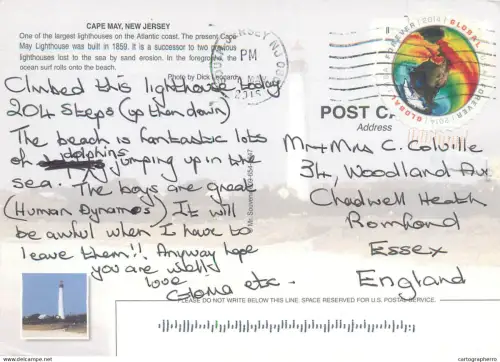 CAPE MAY, NEW JERSEY
One of the largest lighthouses on the Atlantic coast. The present Cape
May Lighthouse was built in 1859. It is a successor to two previous
lighthouses lost to the sea by sand erosion. In the foreground, the
ocean surf rolls onto the beach.
Photo by Dick
PM
GLOBAL FOREVER 2014
GLOBAL FOREVER 2014
POST
Address
Climbed this lighthouse today
204 Steps (up then down)
The beach is fantastic lots
of dolphins jumping up in the
sea. The boys are great
(Human Dynamos) It will
be awful when I have to
leave them!! Anyway hope
you are well!
love
etc.
Mr + Mrs C. Colville
34, Woodland Ave
Chadwell Heath
Romford
Essex
England
PLEASE DO NOT WRITE BELOW THIS LINE. SPACE RESERVED FOR U.S. POSTAL SERVICE.
www.delcampe.net
cartographerro